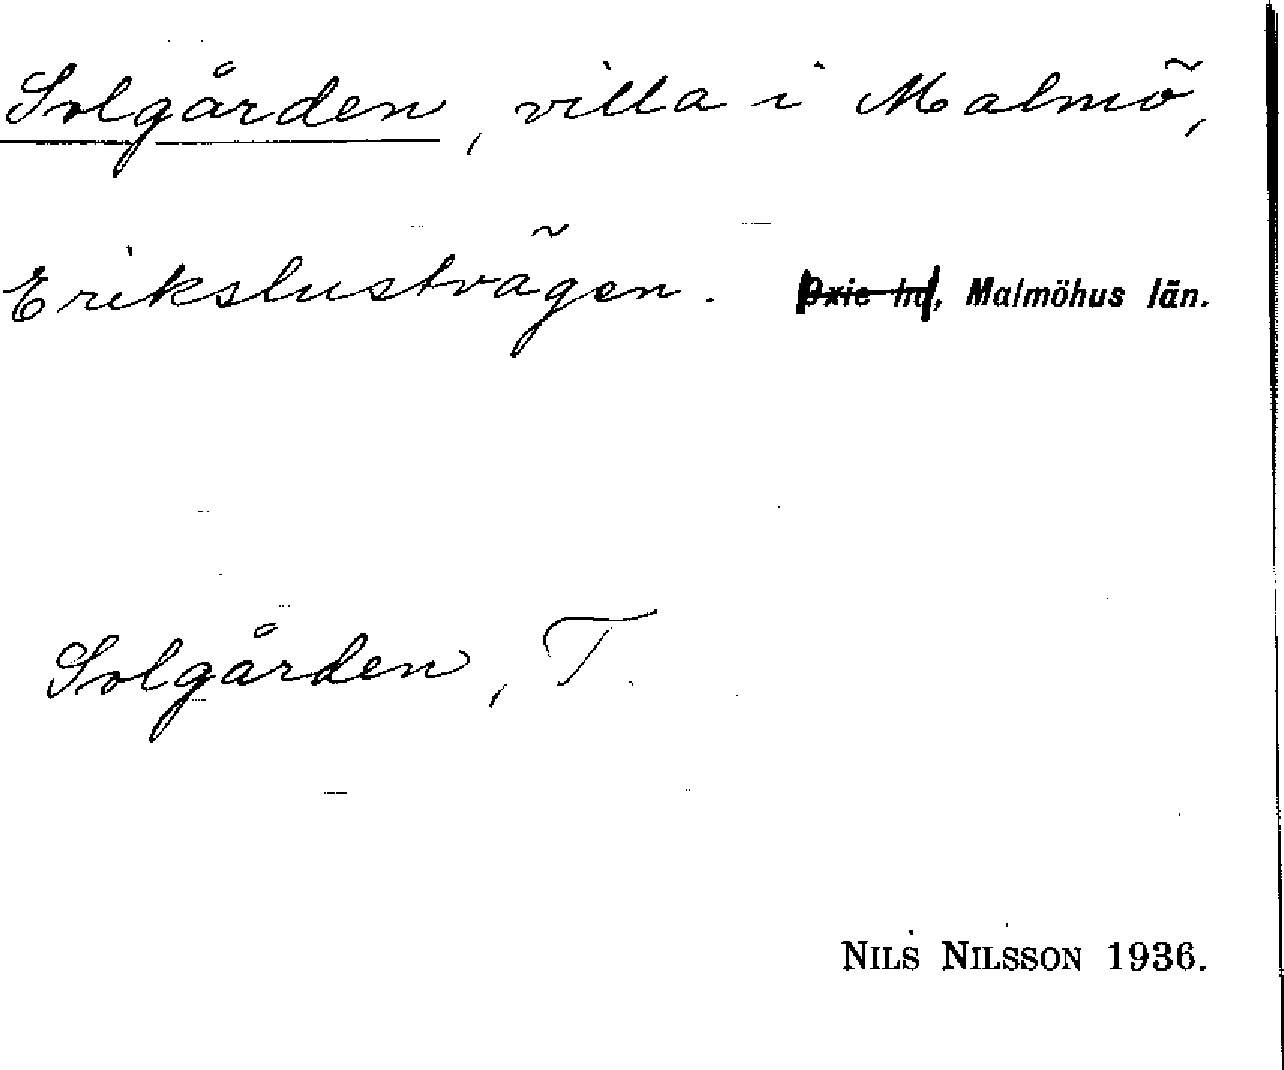 Solgården, villa i Malmö,
Erikslustvägen. Oxie hd, Malmöhus län.
Solgården, T.
NILS NILSSON 1936.